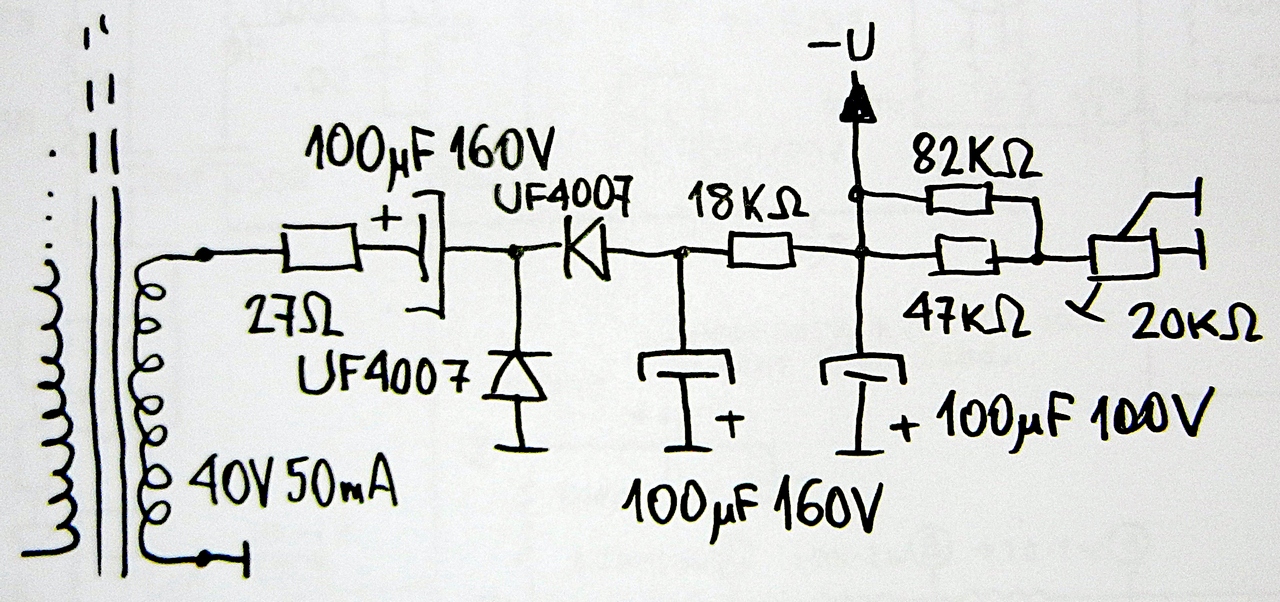 -U
82KΩ
100µF 160V
UF4007
18KΩ
+
27Ω
47KΩ
20KΩ
UF4007
+
+ 100µF 100V
40V 50mA
100µF 160V